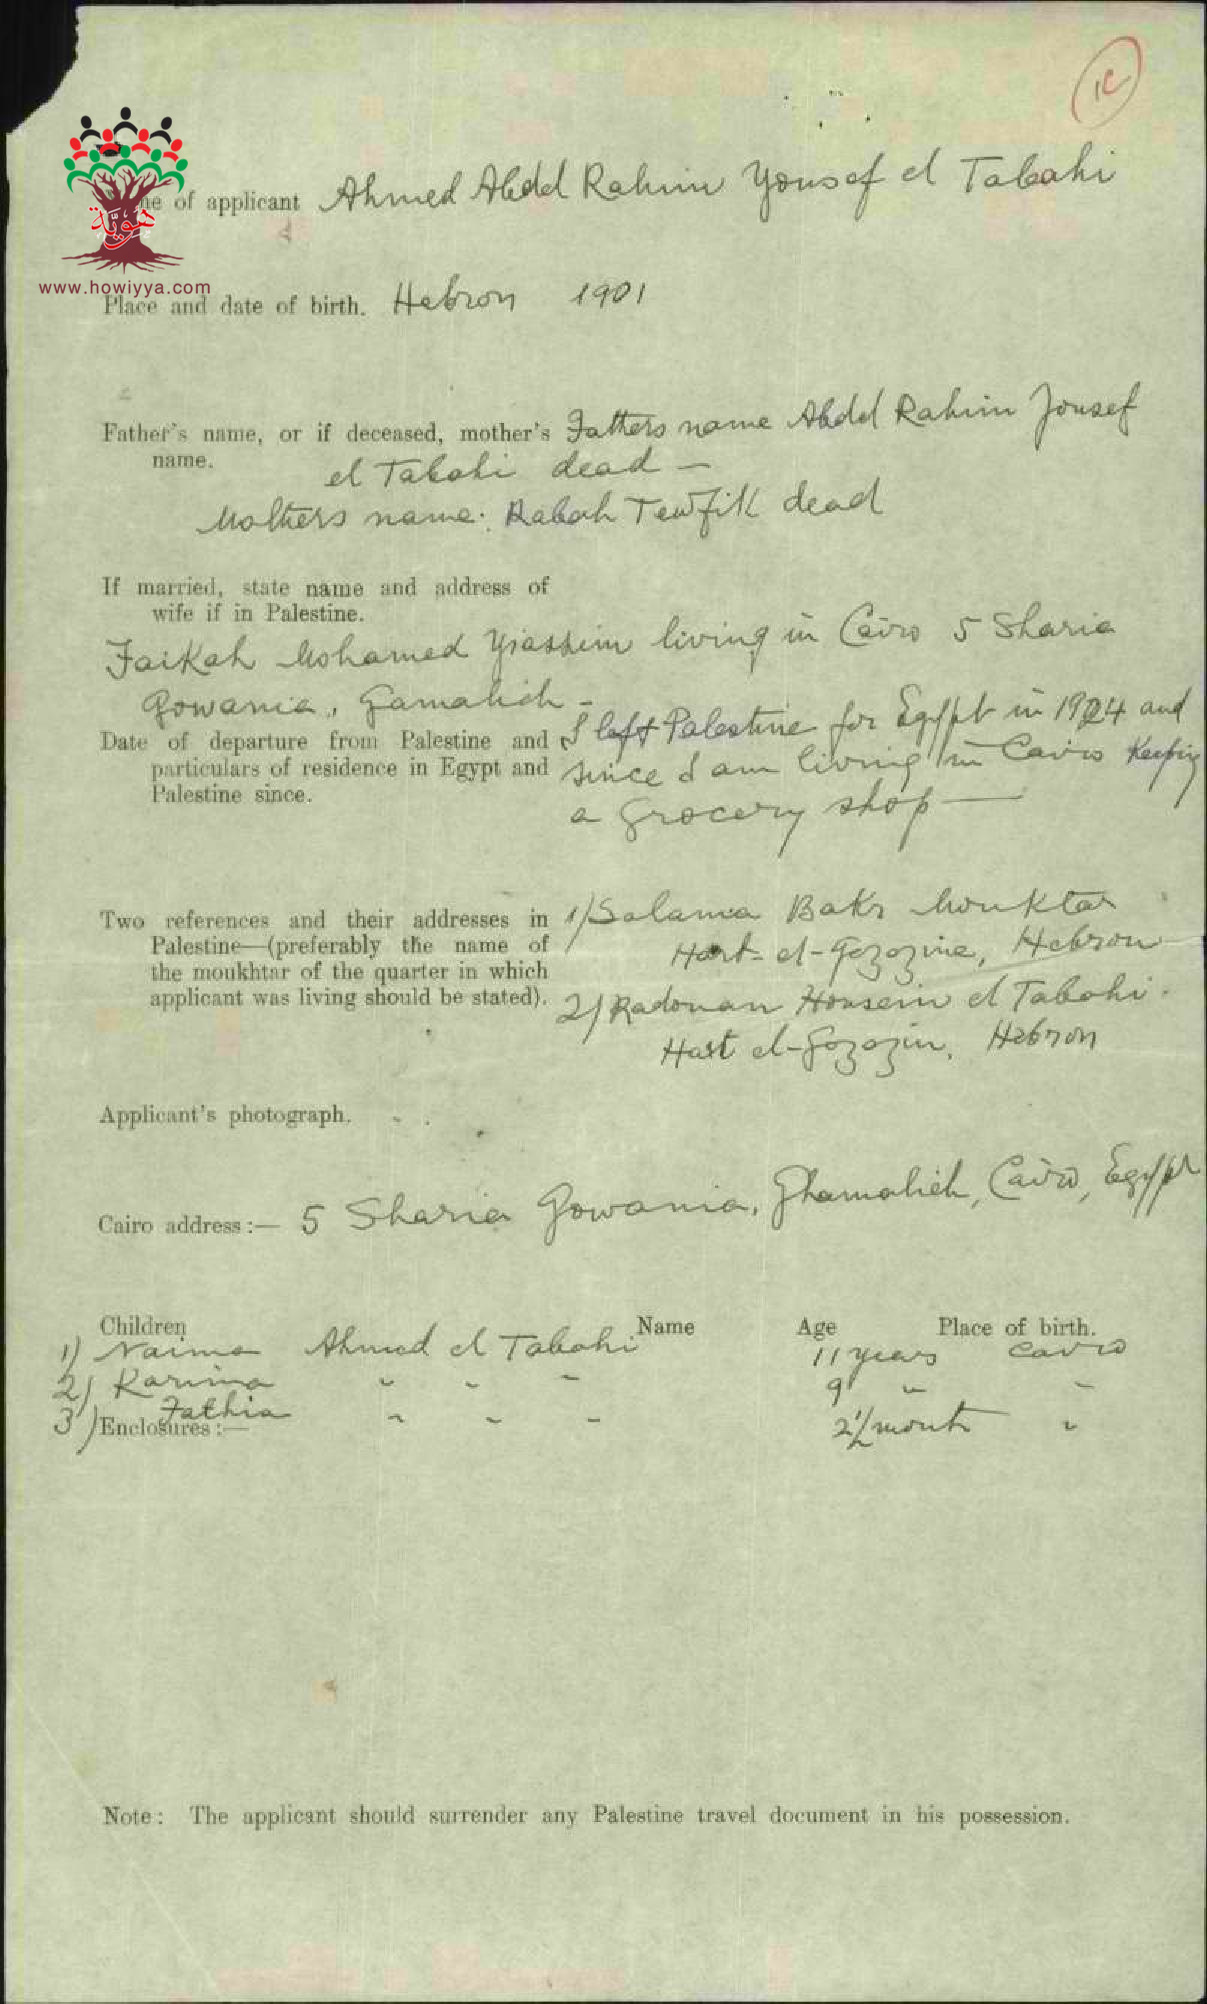 12
Name of applicant Ahmed Abdel Rahim Yousef el Tabahi
هويّة
www.howiyya.com
Place and date of birth. Hebron 1901
Father's name, or if deceased, mother's Fathers name Abdel Rahim Yousef
name. el Tabahi dead —
Mothers name: Rabah Tewfik dead
If married, state name and address of
wife if in Palestine.
Faikah Mohamed living in Cairo 5 Sharia
Gowania, Gamalieh —
Date of departure from Palestine and I left Palestine for Egypt in 1924 and
particulars of residence in Egypt and since I am living in Cairo Keeping
Palestine since. a Grocery shop —
Two references and their addresses in 1/ Salama Bakr Mouktar
Palestine—(preferably the name of Hart-el-Gozozine, Hebron
the moukhtar of the quarter in which
applicant was living should be stated). 2/ Radouan Housein el Tabahi.
Hart el-Gozozin, Hebron
Applicant's photograph.
Cairo address :— 5 Sharia Gowania, Ghamalieh, Cairo, Egypt
Children Name Age Place of birth.
1) Naima Ahmed el Tabahi 11 years Cairo
2) Karima " " " 9 " "
3) Fathia " " " 2½ month "
Enclosures :—
Note : The applicant should surrender any Palestine travel document in his possession.